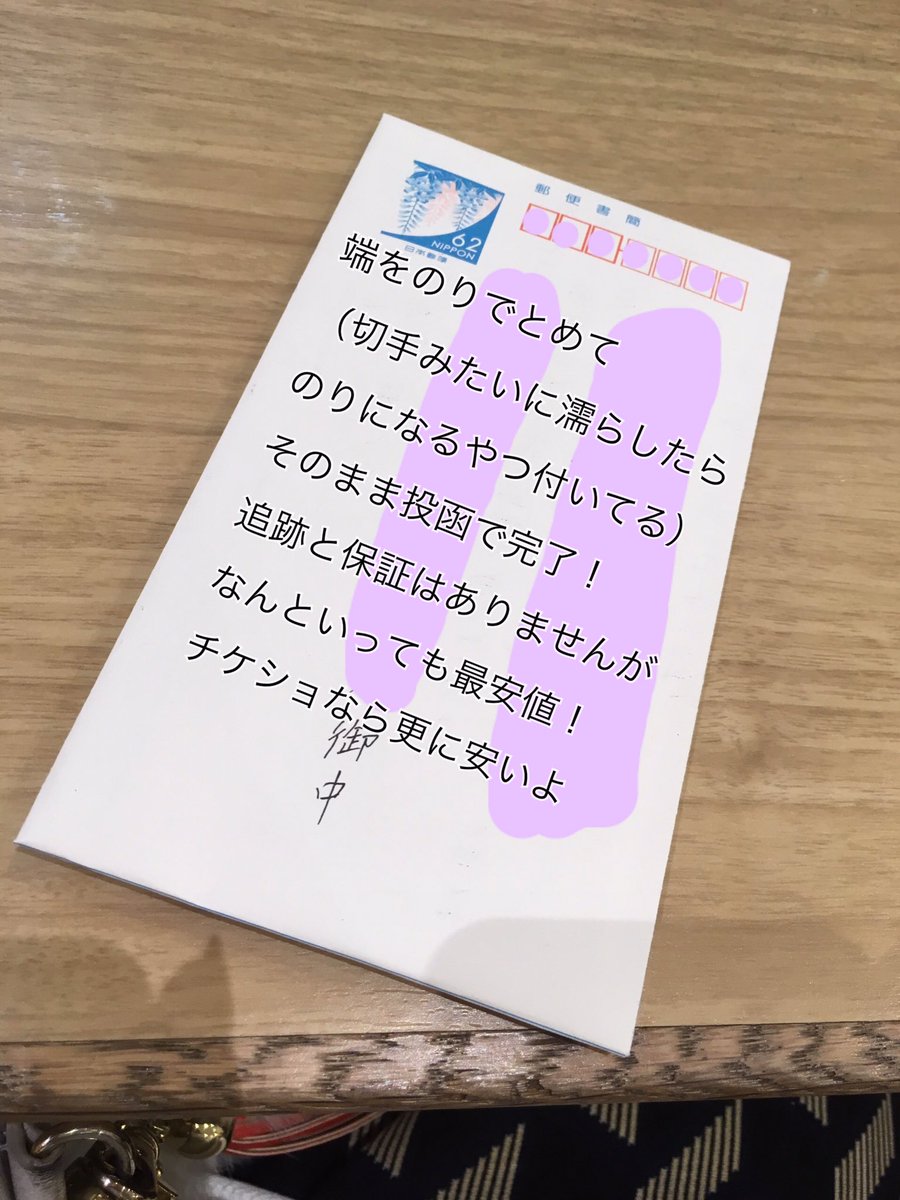 郵便書簡
62
NIPPON
日本郵便
端をのりでとめて
（切手みたいに濡らしたら
のりになるやつ付いてる）
そのまま投函で完了！
追跡と保証はありませんが
なんといっても最安値！
チケショなら更に安いよ
御中